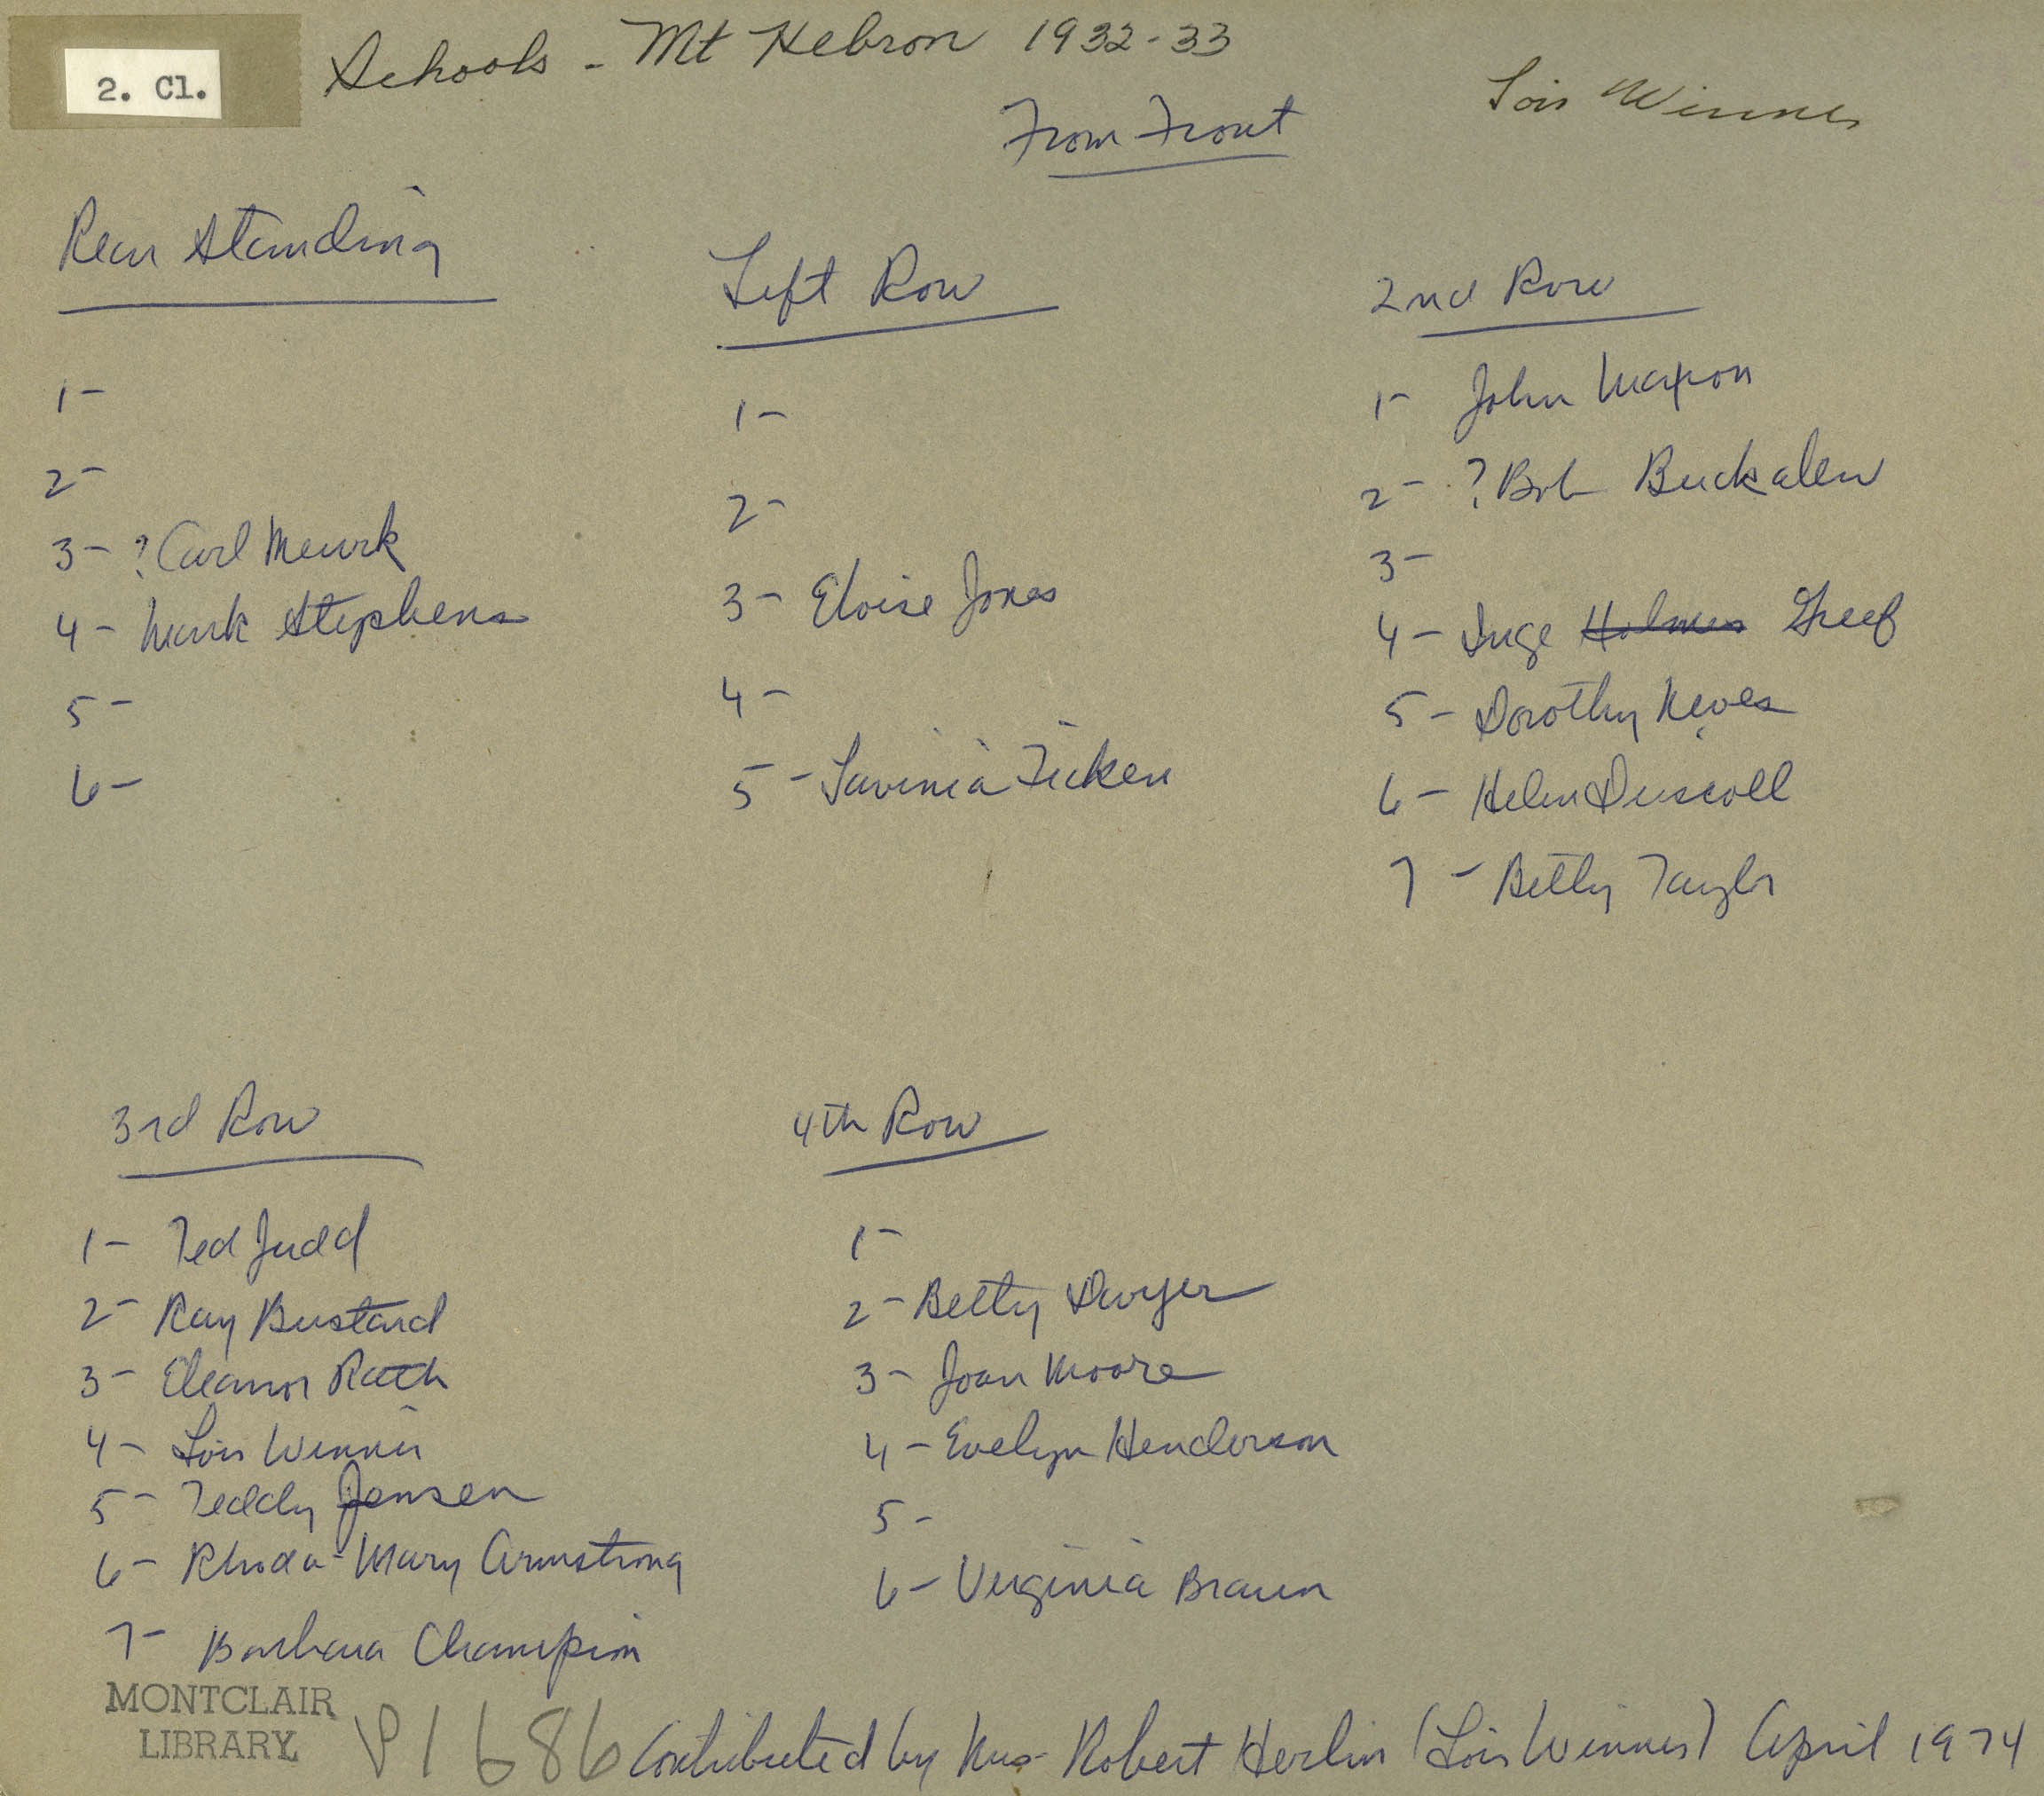 2. Cl.
Schools - Mt Hebron 1932-33
Lois Winner
From Front
Rear Standing
1-
2-
3- ? Carl Meurk
4- Mark Stephens
5-
6-
Left Row
1-
2-
3- Eloise Jones
4-
5- Lavinia Ficken
2nd Row
1- John Maxson
2- ? Bob Buckalew
3-
4- Inge Holmes Greef
5- Dorothy Neves
6- Helen Driscoll
7- Betty Taylor
3rd Row
1- Ted Judd
2- Ray Bustard
3- Eleanor Rath
4- Lois Winner
5- Teddy Jensen
6- Rhoda-Mary Armstrong
7- Barbara Champion
4th Row
1-
2- Betty Dwyer
3- Joan Moore
4- Evelyn Henderson
5-
6- Virginia Braun
MONTCLAIR
LIBRARY
P1686
Contributed by Mrs- Robert Herlin (Lois Winner) April 1974